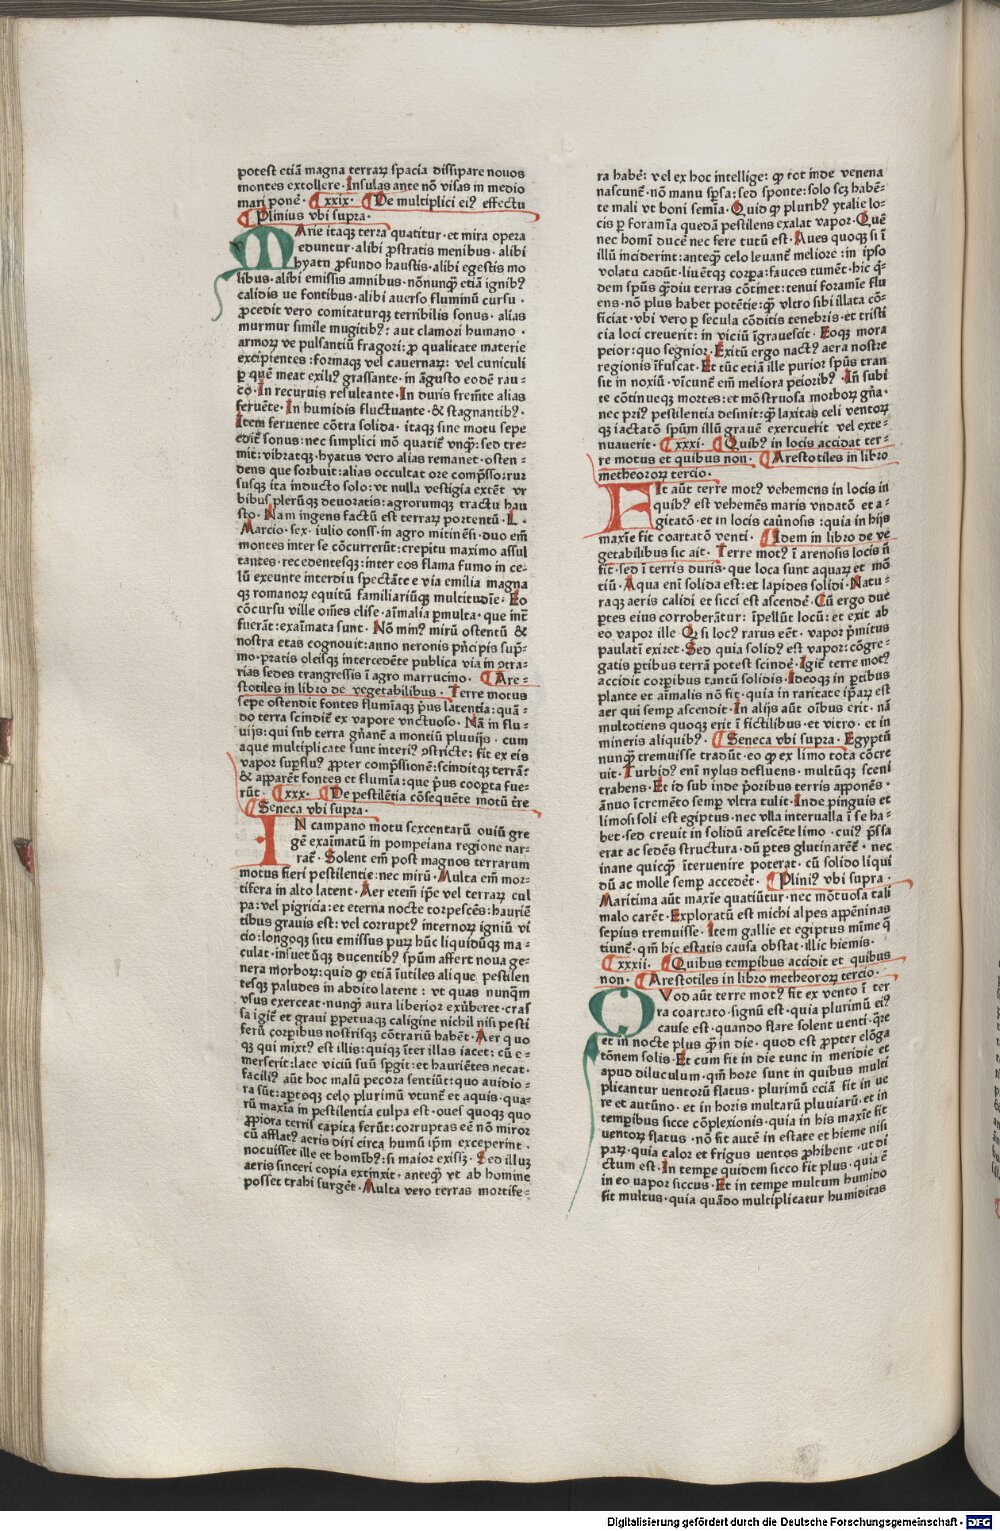 potest etiã magna terraꝝ spacia dissipare nouos
montes extollere· Insulas ante nõ visas in medio
mari ponẽ· xxix· De multiplici eiꝰ effectu
Plinius vbi supra·
MArie itaqꝫ terra quatitur·et mira opera
eduntur·alibi ꝓstratis menibus·alibi
hyatu ꝓfundo haustis·alibi egestis mo
libus·alibi emissis amnibus·nõnunqꝫ etiã ignibꝰ
calidis ue fontibus·alibi auerso fluminũ cursu·
ꝓcedit vero comitaturqꝫ terribilis sonus·alias
murmur simile mugitibꝰ: aut clamori humano·
armoꝝ ve pulsantiũ fragori: ꝓ qualitate materie
excipientes :formaqꝫ vel cauernaꝝ: vel cuniculi
ꝑ quẽ meat exiliꝰ grassante·in ãgusto eodẽ rau-
co·In recuruis resultante·In duris frem̃te alias
feruẽte·In humidis fluctuante·& stagnantibꝰ·
Item feruente cõtra solida·itaqꝫ sine motu sepe
editꝰ sonus: nec simplici mõ quatit᷑ vnqꝫ: sed tre-
mit: vibratqꝫ·hyatus vero alias remanet·osten-
dens que sorbuit: alias occultat ore comp̃sso: rur
susqꝫ ita inducto solo: vt nulla vestigia extẽt vr
bibus plerũqꝫ deuoratis: agrorumqꝫ tractu hau
sto·Nam ingens factũ est terraꝝ portentũ·L·
Marcio·sex·iulio conss·in agro mitinẽsi·duo em̃
montes inter se cõcurrerũt: crepitu maximo assul
tantes·recedentesqꝫ: inter eos flama fumo in ce-
lũ exeunte interdiu spectãte e via emilia magna
qꝫ romanoꝝ equitũ familiariũqꝫ multitudĩe·Eo
cõcursu ville om̃es elise·aĩmalia ꝑmulta·que int᷑
fuerãt: exaĩmata sunt·Nõ minꝰ mirũ ostentũ &
nostra etas cognouit: anno neronis pñcipis sup̃-
mo·pratis oleisqꝫ intercedẽte publica via in ↄtra-
rias sedes trangressis ĩ agro marrucino· Are-
stotiles in libro de vegetabilibus·Terre motus
sepe ostendit fontes flumĩaqꝫ p̃us latentia: quã-
do terra scindit᷑ ex vapore vnctuoso·Nã in flu-
uijs: qui sub terra gñant᷑ a montiũ pluuijs·cum
aque multiplicate sunt interiꝰ ↄstricte: fit ex eis
vapor suꝑfluꝰ ꝓpter comp̃ssionẽ: scinditqꝫ terrã:
& apparẽt fontes et flumĩa: que p̃us cooꝑta fue-
rũt· xxx· De pestilẽtia cõsequẽte motũ t̃re
Seneca vbi supra·
IN campano motu sexcentarũ ouiũ gre
gẽ exaĩmatũ in pompeiana regione nar-
rat᷑·Solent em̃ post magnos terrarum
motus fieri pestilentie: nec mirũ·Multa em̃ mor-
tifera in alto latent·Aer etem̃ ip̃e vel terraꝝ cul
pa: vel pigricia: et eterna nocte torpescẽs: haurie͂
tibus grauis est: vel corruptꝰ internoꝝ igniũ vi
cio: longoqꝫ situ emissus puꝝ hũc liquidũqꝫ ma-
culat·insuetũqꝫ ducentibꝰ sp̃um affert noua ge-
nera morboꝝ: quid ꝙ etiã ĩutiles alique pestilen
tesqꝫ paludes in abdito latent : vt quas nunq̃m
vsus exerceat·nunqꝫ aura liberior exũberet·cras
sa igit᷑ et graui ꝑpetuaqꝫ caligine nichil nisi pesti
ferũ corꝑibus nostrisqꝫ cõtrariũ habẽt·Aer quo
qꝫ qui mixtꝰ est illis: quiqꝫ ĩter illas iacet: cũ e-
merserit: late viciũ suũ sp̃git: et hauriẽtes necat·
faciliꝰ aũt hoc malũ pecora sentiũt: quo auidio-
ra sũt: aꝑtoqꝫ celo plurimũ vtunt᷑ et aquis·qua-
rũ maxĩa in pestilentia culpa est·oues quoqꝫ quo
ꝓpiora terris capita ferũt: corruptas eẽ nõ miror
cũ afflatꝰ aeris diri circa humũ ip̃m exceperint·
nocuisset ille et homĩbꝰ: si maior exisꝫ·Sed illuꝫ
aeris sinceri copia extinxit·anteqꝫ vt ab homine
posset trahi surgẽt·Multa vero terras mortife-
ra habẽt: vel ex hoc intellige: ꝙ tot inde venena
nascunt᷑·nõ manu sp̃sa: sed sponte: solo scꝫ habẽ-
te mali vt boni semĩa·Quid ꝙ pluribꝰ ytalie lo-
cis ꝑ foramĩa quedã pestilens exalat vapor·Quẽ
nec homĩ ducẽ nec fere tutũ est·Aues quoqꝫ si ĩ
illũ inciderint: anteqꝫ celo leuant᷑ meliore: in ipso
volatu cadũt·liuẽtqꝫ corꝑa: fauces tumẽt·hic q̃-
dem sp̃us qꝫdiu terras cõtinet: tenui foramĩe flu
ens·nõ plus habet potẽtie: qꝫ vltro sibi illata cõ-
ficiat·vbi vero ꝑ secula cõditis tenebris·et tristi
cia loci creuerit: in viciũ ĩgrauescit·Eoqꝫ mora
peior: quo segnior·Exitũ ergo nactꝰ aera nostre
regionis ĩfuscat·Et tũc etiã ille purior sp̃us tran
sit in noxiũ·vĩcunt᷑ em̃ meliora peioribꝰ·Iñ subi
te cõtinueqꝫ mortes: et mõstruosa morboꝝ gña·
nec priꝰ pestilentia desinit: qꝫ laxitas celi ventoꝝ
qꝫ iactatõ sp̃um illũ grauẽ exercuerit vel exte-
nuauerit· xxxi· Quibꝰ in locis accidat ter-
re motus et quibus non· Arestotiles in libro
metheoroꝝ tercio·
FIt aũt terre motꝰ vehemens in locis in
quibꝰ est vehemẽs maris vndatõ et a-
gitatõ·et in locis cau̾nosis : quia in hijs
maxĩe fit coartatõ venti· Idem in libro de ve
getabilibus sic ait·Terre motꝰ ĩ arenosis locis ñ
fit·sed ĩ terris duris·que loca sunt aquaꝝ et mõ
tiũ·Aqua eni solida est: et lapides solidi·Natu-
raqꝫ aeris calidi et sicci est ascendẽ·Cũ ergo due
ꝑtes eius corroberãtur: ĩpellũt locũ: et exit ab
eo vapor ille Q si locꝰ rarus eẽt·vapor p̃mitus
paulatĩ exiret·Sed quia solidꝰ est vapor: cõgre-
gatis ꝑtibus terrã potest scindẽ·Igit᷑ terre motꝰ
accidit corꝑibus tantũ solidis·Ideoqꝫ in ꝑtibus
plante et aĩmalis nõ fit·quia in raritate ip̃aꝝ est
aer qui semꝑ ascendit·In alijs aũt oĩbus erit·nã
multotiens quoqꝫ erit ĩ fictilibus·et vitro·et in
mineris aliquibꝰ· Seneca vbi supra·Egyptũ
nunqꝫ tremuisse tradũt·eo ꝙ ex limo tota cõcre
uit·Turbidꝰ eni nylus defluens·multũqꝫ sceni
trahens·Et id sub inde p̃oribus terris appõnẽs·
ãnuo ĩcremẽto semꝑ vltra tulit·Inde pinguis et
limosi soli est egiptus·nec vlla interualla ĩ se ha-
bet·sed creuit in solidũ arescẽte limo·cuiꝰ p̃ssa
erat ac sedẽs structura·dũ ꝑtes glutinarẽt᷑·nec
inane quicqꝫ ĩteruenire poterat·cũ solido liqui
dũ ac molle semꝑ accedẽt· Pliniꝰ vbi supra·
Maritima aũt maxĩe quatiũtur·nec mõtuosa tali
malo carẽt·Exploratũ est michi alpes appẽninas
sepius tremuisse·Item gallie et egiptus mĩme q̃
tiunt᷑·qm̃ hic estatis causa obstat·illic hiemis·
xxxii· Quibus temꝑibus accidit et quibus
non· Arestotiles in libro metheoroꝝ tercio·
QVod aũt terre motꝰ fit ex vento ĩ ter
ra coartato·signũ est·quia plurimũ eiꝰ
cause est·quando flare solent uenti·q̃re
et in nocte plus qꝫ in die·quod est ꝓpter elõga
tõnem solis·Et cum fit in die tunc in meridie et
apud diluculum·qm̃ hore sunt in quibus multi
plicantur uentorũ flatus·plurimũ eciã fit in ue
re et autũno·et in horis multarũ pluuiarũ·et in
temꝑibus sicce cõplexionis·quia in his maxĩe fit
uentoꝝ flatus·nõ fit autẽ in estate et hieme nisi
paꝝ·quia calor et frigus uentos ꝓhibent·ut di
ctum est·In temꝑe quidem sicco fit plus·quia ẽ
in eo uapor siccus·Et in temꝑe multum humido
fit multus·quia quãdo multiplicatur humiditas
Digitalisierung gefördert durch die Deutsche Forschungsgemeinschaft - DFG